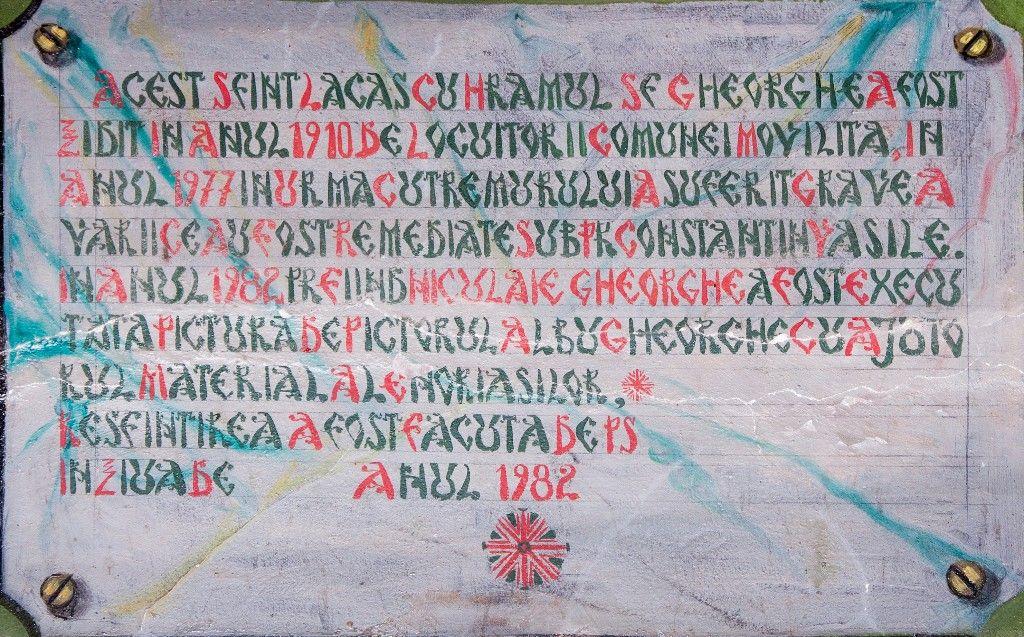 ACEST SFINT LACAS CU HRAMUL SF GHEORGHE A FOST
ZIDIT IN ANUL 1910 DE LOCUITORII COMUNEI MOVILITA, IN
ANUL 1977 IN URMA CUTREMURULUI A SUFERIT GRAVE A
VARII CE AU FOST REMEDIATE SUB PR CONSTANTIN VASILE.
IN ANUL 1982 PR FIIND NICULAIE GHEORGHE A FOST EXECU
TATA PICTURA DE PICTORUL ALBU GHEORGHE CU AJUTO
RUL MATERIAL AL ENORIASILOR,
RESFINTIREA A FOST FACUTA DE PS
IN ZIUA DE ANUL 1982